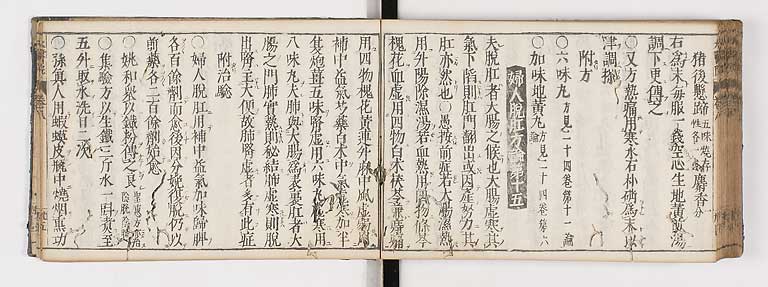 猪後懸蹄 五味 麝香
右爲末每服一錢空心生地黃湯
調下更傳之
○又方熱腫用寒水石朴硝爲末以
津調搽
附方
○六味丸 方見二十四卷第十一論
○加味地黃丸 方見二十四卷第六論
婦人脫肛方論第十五
夫脫肛者大腸之候也大腸虛寒其
氣下陷則肛門翻出或因產努力其
肛亦然也○愚按前症若大腸濕熱
用升陽除濕湯若血熱用四物條芩
槐花血虛用四物白朮茯苓
用四物槐花黃連升麻中氣虛
補中益氣芍藥白朮中氣虛寒加半
夏炮薑五味腎虛用六味丸虛寒用
八味丸夫肺與大腸爲表裏肛者大
腸之門肺實熱則秘結肺虛寒則脫
出腎主大便故肺腎虛者多有此症
附治驗
○婦人脫肛用補中益氣加味歸脾
各百餘劑而愈後因分娩復脫仍以
前藥各二百餘劑始愈
○姚和衆以鐵粉傅之良
○集驗方以生鐵三斤水一斗煮至
五升取水洗日二次
○孫眞人用蝦蟆皮瓶中燒烟熏功